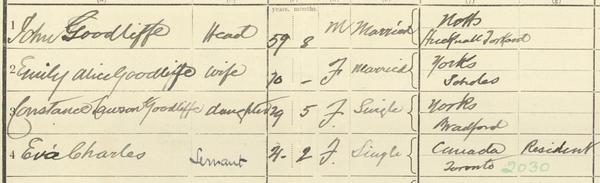 years. months.
1 John Goodliffe Head 59 8 M Married Notts
Hucknall Torkard
2 Emily Alice Goodliffe Wife 70 - F Married Yorks
Scholes
3 Constance Lawson Goodliffe daughter 29 5 F. Single Yorks
Bradford
4 Eva Charles Servant 2 F. Single Canada Resident
Toronto 2030